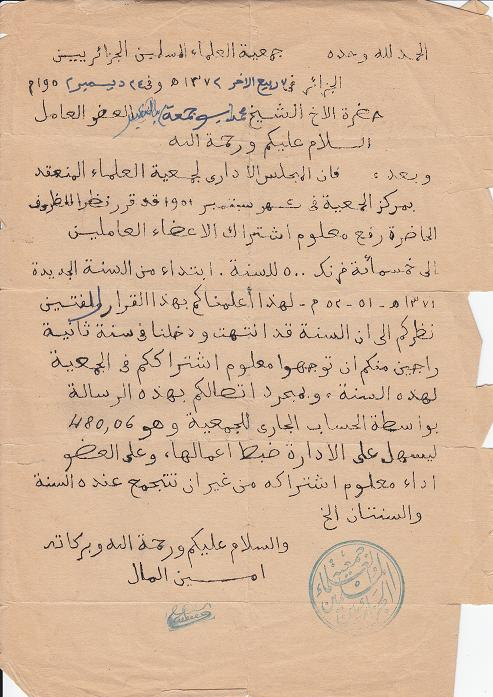 الحمد لله وحده جمعية العلماء المسلمين الجزائريين
الجزائر في ٧ ربيع الآخر ١٣٧٢ ه وفي ٢٤ ديسمبر ١٩٥٢ م
حضرة الاخ الشيخ محمد بوجمعة العضو العامل
السلام عليكم ورحمة الله
وبعد، فان المجلس الادارى لجمعية العلماء المنعقد
بمركز الجمعية في شهر سبتمبر ١٩٥١ قد قرر نظرا للظروف
الحاضرة رفع معلوم اشتراك الاعضاء العاملين
الى خمسمائة فرنك ٥٠٠ للسنة. ابتداء من السنة الجديدة
١٣٧١ ه - ٥١ - ٥٢ م - لهذا أعلمناكم بهذا القرار ملفتين
نظركم الى ان السنة قد انتهت ودخلنا في سنة ثانية
راجين منكم ان توجهوا معلوم اشتراككم في الجمعية
لهذه السنة، وبمجرد اتصالكم بهذه الرسالة
بواسطة الحساب الجارى للجمعية وهو 480,06
ليسهل على الادارة ضبط اعمالها، وعلى العضو
اداء معلوم اشتراكه من غير ان تتجمع عنده السنة
والسنتان الخ
والسلام عليكم ورحمة الله وبركاته
امين المال
جمعية العلماء المسلمين الجزائريين